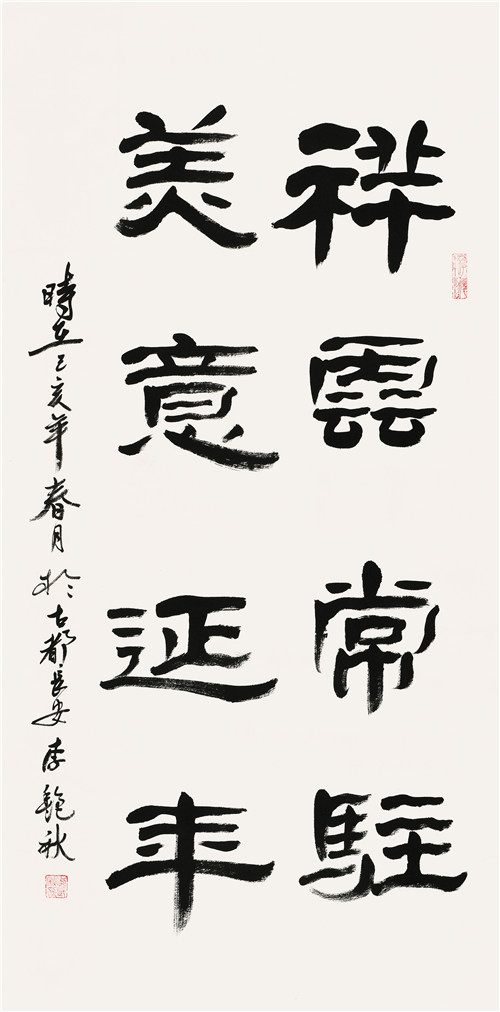 祥雲常駐
美意延年
時在己亥年春月於古都長安李艶秋